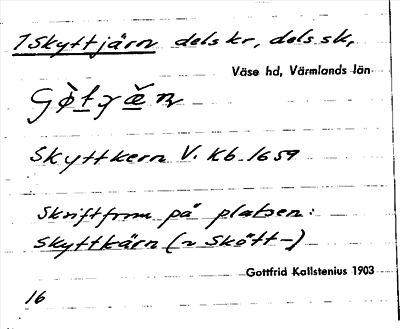 1 Skyttjärn dels kr, dels sk,
Väse hd, Värmlands län
Skyttkern V. Kb. 1659
Skriftform på platsen:
Skyttkärn (~ Skött-)
Gottfrid Kallstenius 1903
16